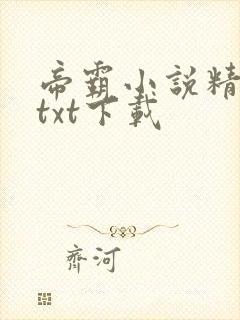 帝霸小說精
txt下載
齊河